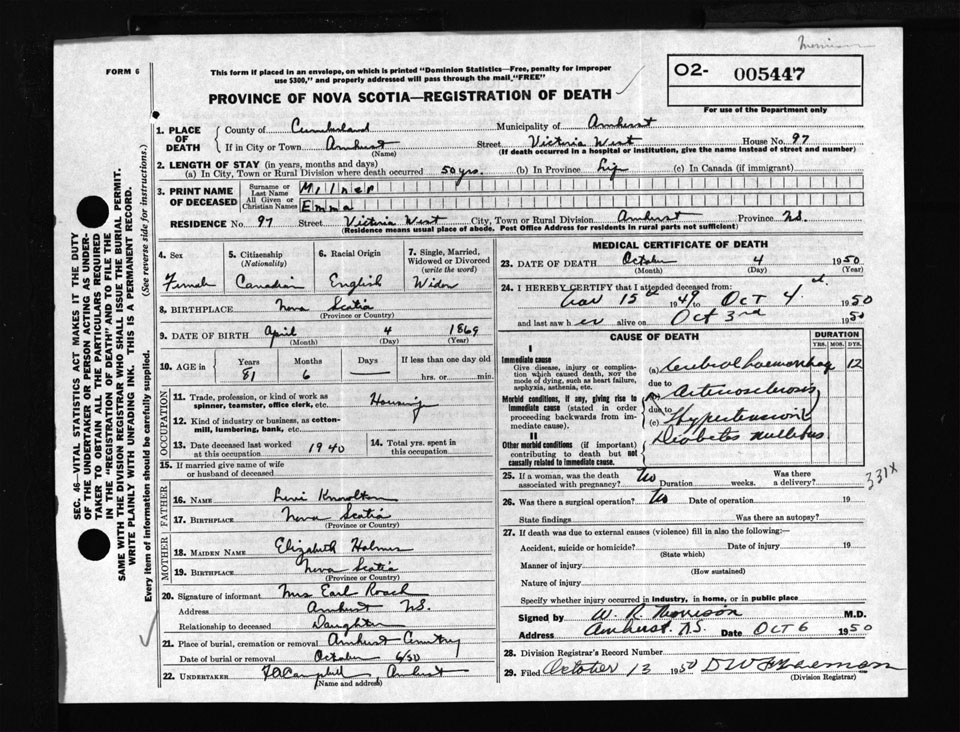 FORM 6
This form if placed in an envelope, on which is printed "Dominion Statistics—Free, penalty for improper
use $300," and properly addressed will pass through the mail, "FREE"
O2- 005447
For use of the Department only
PROVINCE OF NOVA SCOTIA—REGISTRATION OF DEATH
SEC. 46—VITAL STATISTICS ACT MAKES IT THE DUTY
OF THE UNDERTAKER OR PERSON ACTING AS UNDER-
TAKER TO OBTAIN ALL THE PARTICULARS REQUIRED
IN THE "REGISTRATION OF DEATH" AND TO FILE THE
SAME WITH THE DIVISION REGISTRAR WHO SHALL ISSUE THE BURIAL PERMIT.
WRITE PLAINLY WITH UNFADING INK. THIS IS A PERMANENT RECORD.
Every item of information should be carefully supplied. (See reverse side for instructions.)
1. PLACE OF DEATH
County of Cumberland Municipality of Amherst
If in City or Town Amherst Street Victoria West House No. 97
(Name) (If death occurred in a hospital or institution, give the name instead of street and number)
2. LENGTH OF STAY (in years, months and days)
(a) In City, Town or Rural Division where death occurred 50 yrs. (b) In Province Life (c) In Canada (if immigrant)
3. PRINT NAME OF DECEASED
Surname or Last Name Milner
All Given or Christian Names Emma
RESIDENCE No. 97 Street Victoria West City, Town or Rural Division Amherst Province N.S.
(Residence means usual place of abode. Post Office Address for residents in rural parts not sufficient)
4. Sex 5. Citizenship (Nationality) 6. Racial Origin 7. Single, Married, Widowed or Divorced (write the word)
Female Canadian English Widow
8. BIRTHPLACE Nova Scotia
(Province or Country)
9. DATE OF BIRTH April 4 1869
(Month) (Day) (Year)
10. AGE in Years Months Days If less than one day old
81 6 hrs. or min.
OCCUPATION
11. Trade, profession, or kind of work as
spinner, teamster, office clerk, etc.
12. Kind of industry or business, as cotton-
mill, lumbering, bank, etc.
13. Date deceased last worked at this occupation 1940 14. Total yrs. spent in this occupation
15. If married give name of wife
or husband of deceased
FATHER
16. NAME Knowlton
17. BIRTHPLACE Nova Scotia
(Province or Country)
MOTHER
18. MAIDEN NAME Elizabeth Holmes
19. BIRTHPLACE Nova Scotia
(Province or Country)
20. Signature of informant Mrs Earl Roach
Address Amherst N.S.
Relationship to deceased Daughter
21. Place of burial, cremation or removal Amherst Cemetery
Date of burial or removal October 6/50
22. UNDERTAKER Campbell, Amherst
(Name and address)
MEDICAL CERTIFICATE OF DEATH
23. DATE OF DEATH October 4 1950
(Month) (Day) (Year)
24. I HEREBY CERTIFY that I attended deceased from:
Nov 15th 1949 to Oct 4 1950
and last saw her alive on Oct 3rd 1950
CAUSE OF DEATH DURATION
YRS. MOS. DYS.
I
Immediate cause
Give disease, injury or complica-
tion which caused death, NOT the
mode of dying, such as heart failure,
asphyxia, asthenia, etc.
(a) Cerebral haemorrhage 12
due to
Arteriosclerosis
Morbid conditions, if any, giving rise to
immediate cause (stated in order
proceeding backwards from im-
mediate cause).
due to
(c) Hypertension
II
Other morbid conditions (if important)
contributing to death but not
causally related to immediate cause.
Diabetes mellitus
331X
25. If a woman, was the death associated with pregnancy? No Duration weeks. Was there a delivery?
26. Was there a surgical operation? No Date of operation 19
State findings Was there an autopsy?
27. If death was due to external causes (violence) fill in also the following:—
Accident, suicide or homicide? Date of injury 19
(State which)
Manner of injury
(How sustained)
Nature of injury
Specify whether injury occurred in industry, in home, or in public place
Signed by W. R. Morrison M.D.
Address Amherst N.S. Date Oct 6 1950
28. Division Registrar's Record Number
29. Filed October 13 1950
(Division Registrar)